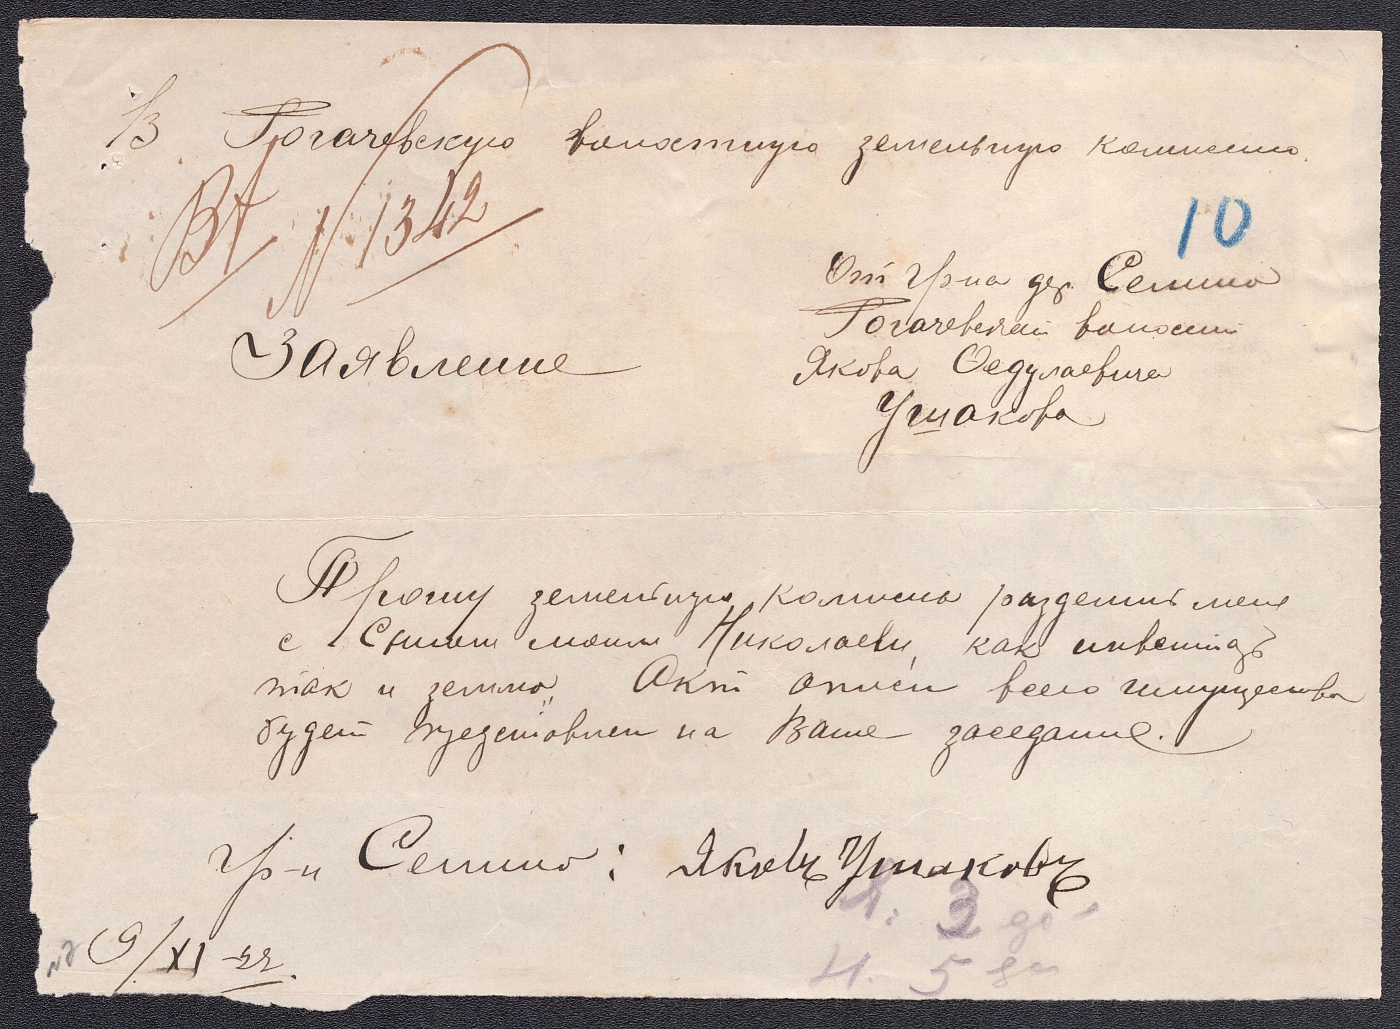 В Рогачевскую волостную земельную комиссию.
Вх № 1342
10
От гр-на дер. Семино
Рогачевской волости
Якова Федулаевича
Ушакова
Заявление
Прошу земельную комиссию разделить меня
с Сыном моим Николаем, как инвентарь
так и землю. Акт описи всего имущества
будет представлен на Ваше заседание.
гр-н Семино: Яковъ Ушаковъ
Я. 3 до
Н. 5
9/XI-22.